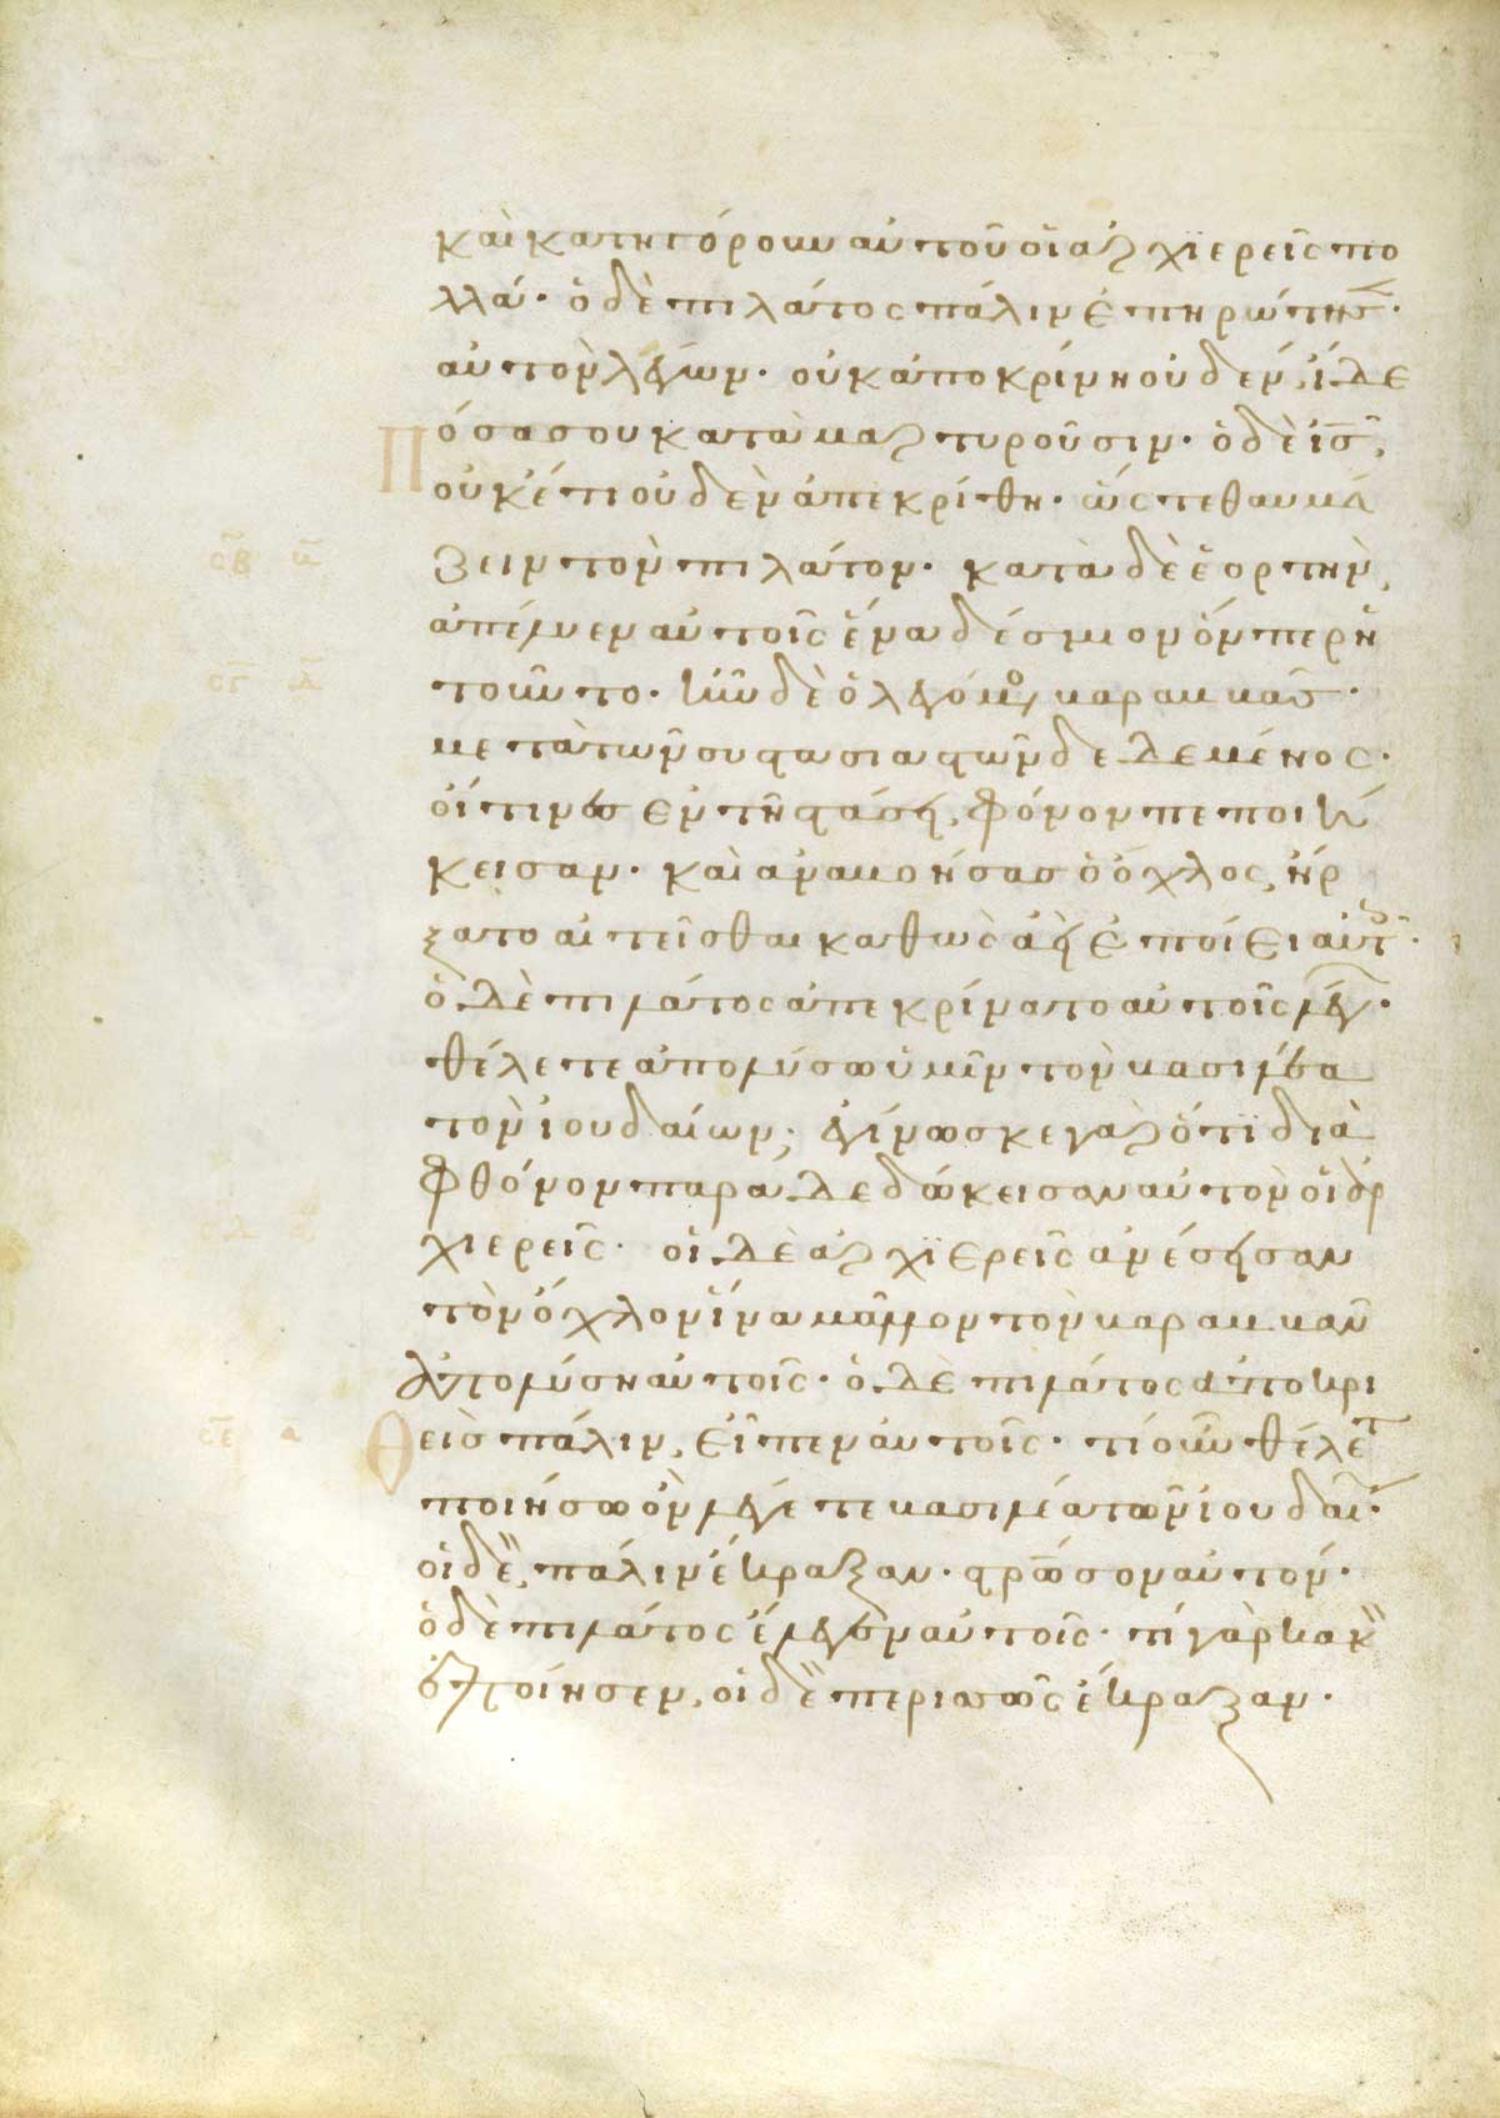 καὶ κατηγόρουν αὐτοῦ οἱ ἀρχϊερεῖς πο
λλά· ὁ δὲ πιλάτος πάλιν ἐπηρώτησ̅·
αὐτὸν λέγων· οὐκ ἀποκρίνη οὐδέν, ἴδε
πόσα σου καταμαρτυροῦσιν· ὁ δὲ ἰς̅,
οὐκέτι οὐδὲν ἀπεκρίθη· ὥςτε θαυμά
ζειν τὸν πιλάτον· κατὰ δὲ ἑορτὴν,
ἀπέλυεν αὐτοῖς ἕνα δέσμιον ὅνπερ ἠ
τοῦντο· ἦν δὲ ὁ λεγόμο βαραββασ̅·
μετὰ τῶν συστασιαστῶν δεδεμένος·
οἵτινες ἐν τῆ στάσει, φόνον πεποιή
κεισαν· καὶ ἀναβοήσας ὁ ὄχλος, ἤρ
ξατο αἰτεῖσθαι καθὼς ἀεὶ ἐποίει αὐτ·
ὁ δὲ πιλάτος ἀπεκρίνατο αὐτοῖς λέγ·
θέλετε ἀπολύσω ὑμῖν τὸν βασιλέα
τὸν ἰουδαίων; ἐγίνωσκε γὰρ ὅτϊ διὰ
φθόνον παραδεδώκεισαν αὐτὸν οἱ ἀρ
χιερεῖς· οἱ δὲ ἀρχϊερεῖς ἀνέσεισαν
τὸν ὄχλον ἵνα μᾶλλον τὸν βαραββαν̅
ἀπολύση αὐτοῖς· ὁ δὲ πιλάτος ἀποκρι
θεὶς πάλιν, εἶπεν αὐτοῖς· τί οὖν θέλετ
ποιήσω ὃν λέγετε βασιλέα τῶν ἰουδαί·
οἱ δὲ, πάλιν ἔκραξαν· στρω̅σον αὐτόν·
ὁ δὲ πιλάτος ἔλεγεν αὐτοῖς· τί γὰρ κακ
ἐποίησεν, οἱ δὲ περισσῶς ἔκραξαν·